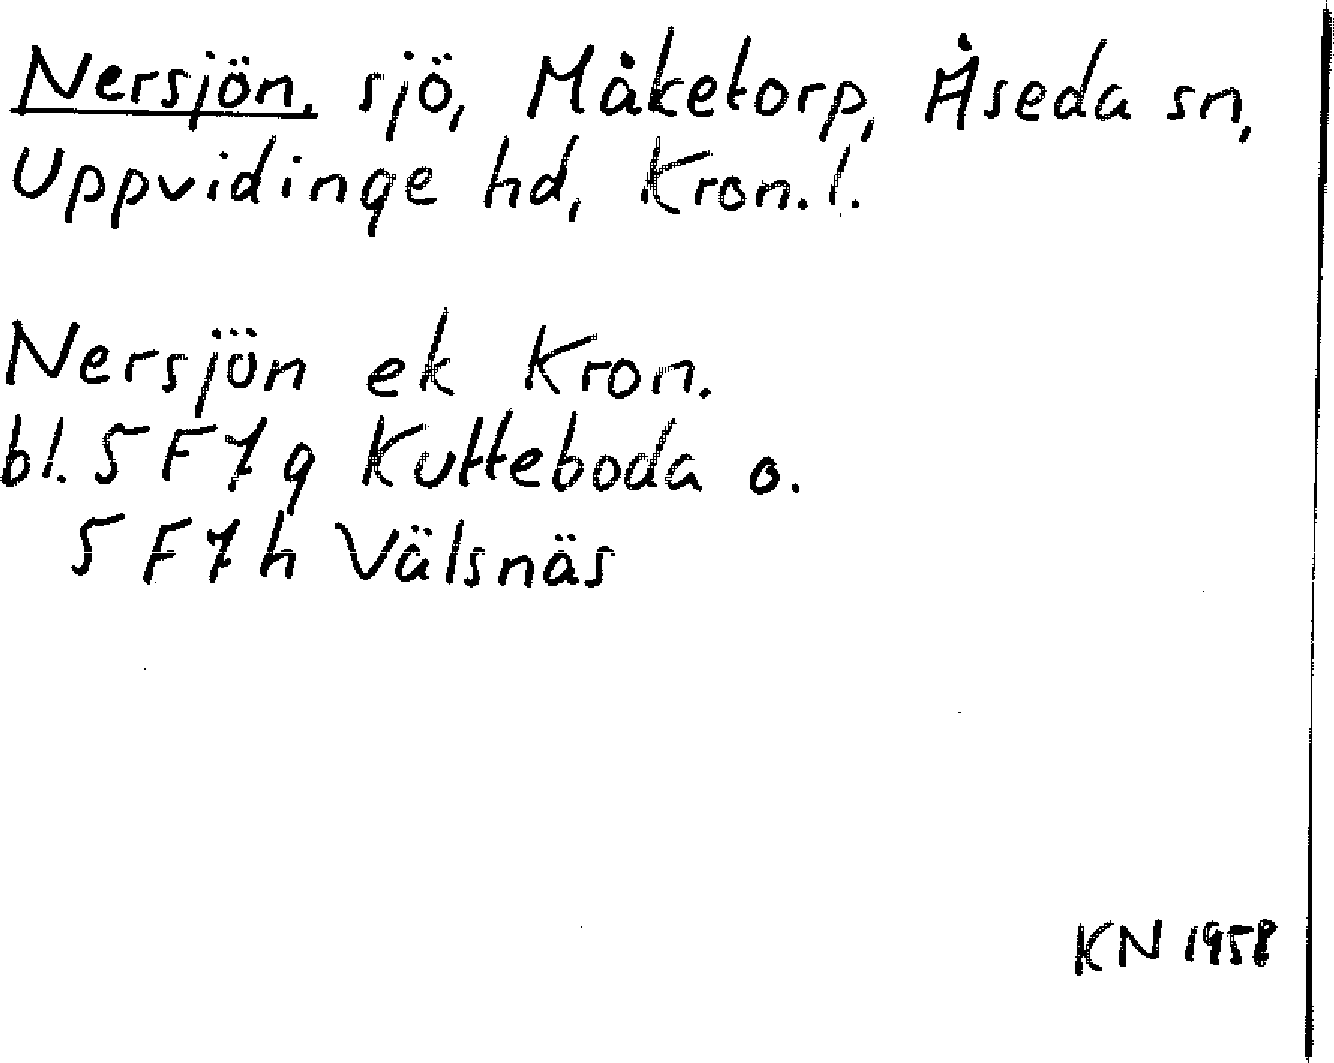 Nersjön, sjö, Måketorp, Åseda sn,
Uppvidinge hd, Kron.l.
Nersjön ek Kron.
bl. 5 F 7 g Kutteboda o.
5 F 7 h Välsnäs
KN 1958